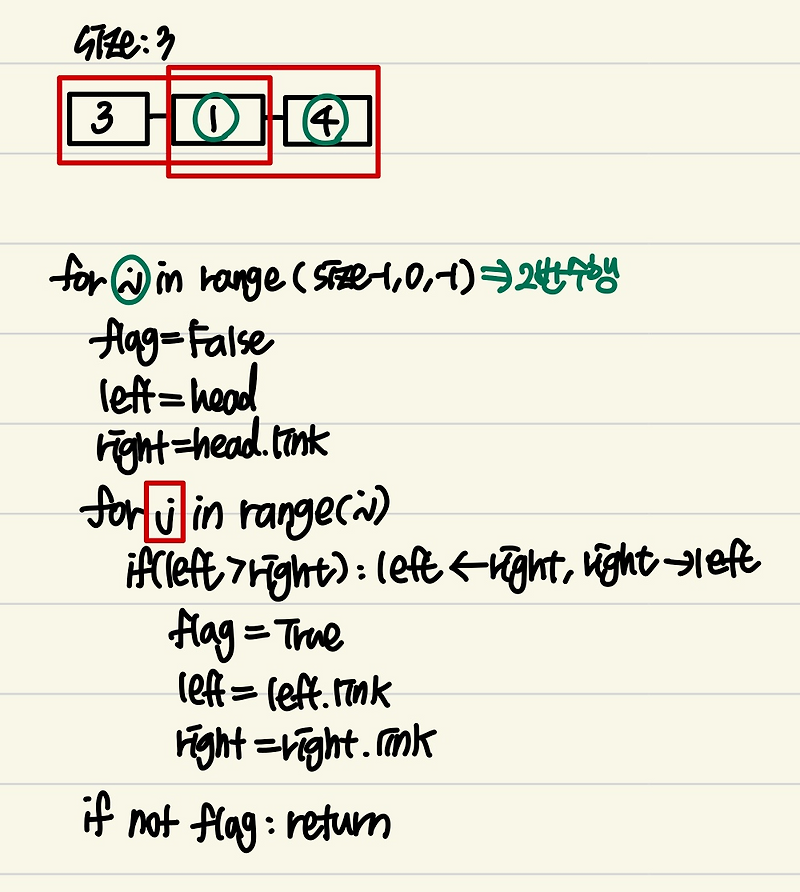 size: 3
3 1 4
for i in range (size-1, 0, -1) ⇒ 2번 수행
flag = False
left = head
right = head.link
for j in range(i)
if(left > right) : left ← right, right → left
flag = True
left = left.link
right = right.link
if not flag : return